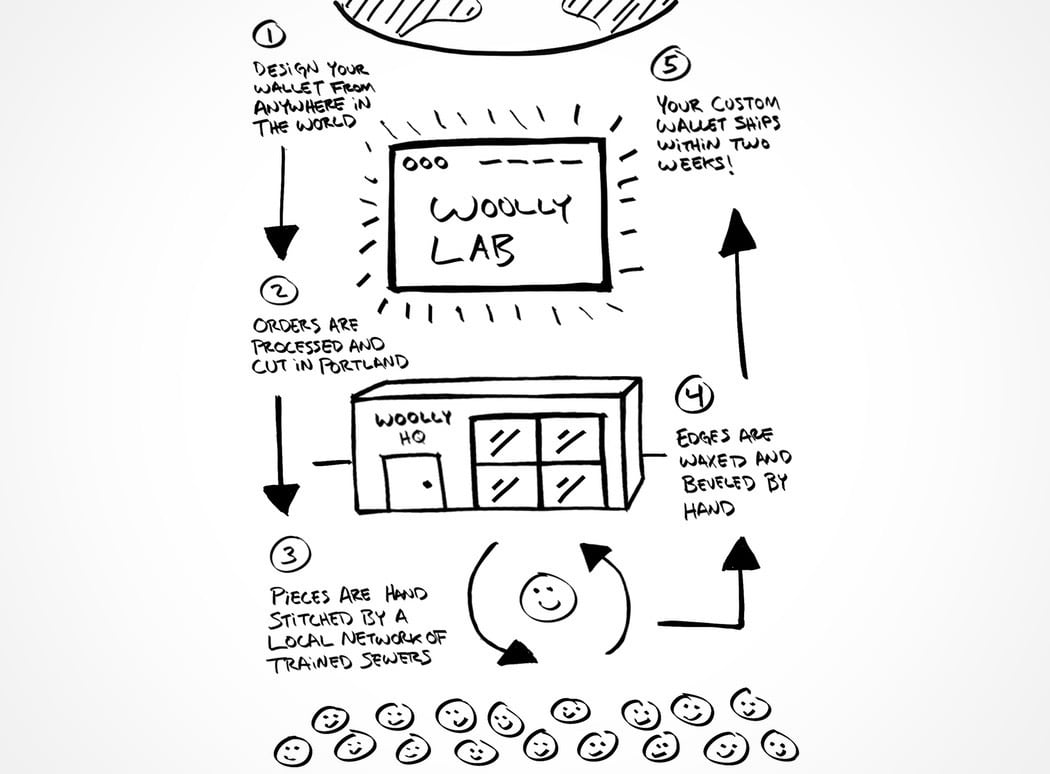 1
DESIGN YOUR
WALLET FROM
ANYWHERE IN
THE WORLD
WOOLLY
LAB
2
ORDERS ARE
PROCESSED AND
CUT IN PORTLAND
WOOLLY
HQ
3
PIECES ARE HAND
STITCHED BY A
LOCAL NETWORK OF
TRAINED SEWERS
4
EDGES ARE
WAXED AND
BEVELED BY
HAND
5
YOUR CUSTOM
WALLET SHIPS
WITHIN TWO
WEEKS!